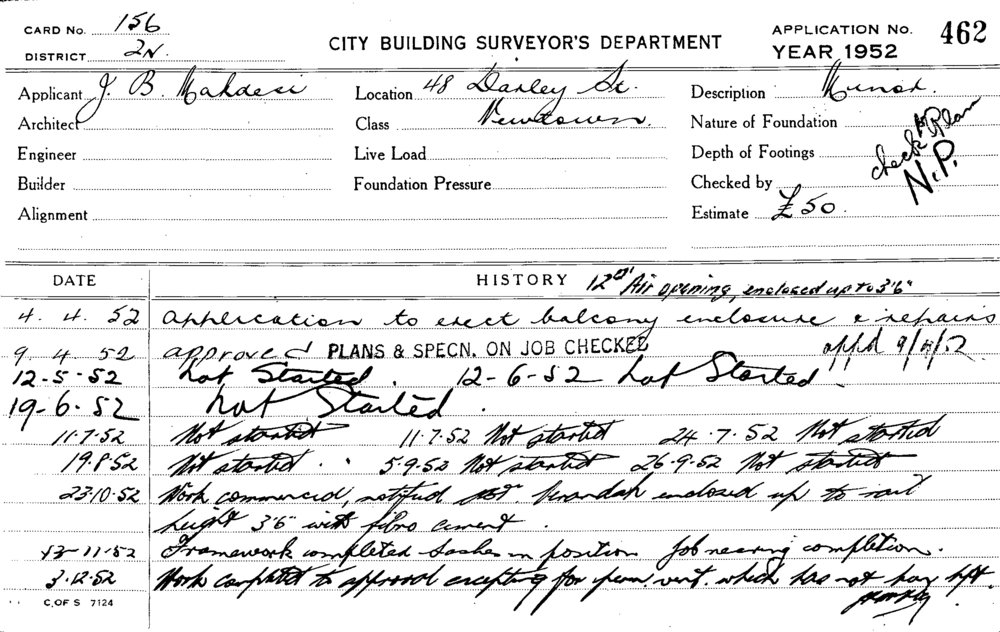 CARD No. 156
DISTRICT 2N.
CITY BUILDING SURVEYOR'S DEPARTMENT
APPLICATION No. 462
YEAR 1952
Applicant J. B. Mahdesi Location 48 Darley St. Description Minor.
Architect Class Newtown. Nature of Foundation
Engineer Live Load Depth of Footings
Builder Foundation Pressure Checked by
Alignment Estimate £50.
check Plan
N.P.
DATE HISTORY 12 Air opening, enclosed up to 3'6"
4. 4. 52 application to erect balcony enclosure & repairs
9. 4. 52 approved PLANS & SPECN. ON JOB CHECKED appd 9/4/52
12-5-52 not Started. 12-6-52 not Started
19-6-52 not Started.
11.7.52 Not started 11.7.52 Not started 24.7.52 Not started
19.8.52 Not started. 5.9.52 Not started 26.9.52 Not started
23.10.52 Work commenced, notified Verandah enclosed up to rail
height 3'6" with fibro cement.
13-11-52 Framework completed Sashes in position Job nearing completion.
3.12.52 Work completed to approval excepting for perm. vent. which has not
C. OF S 7124